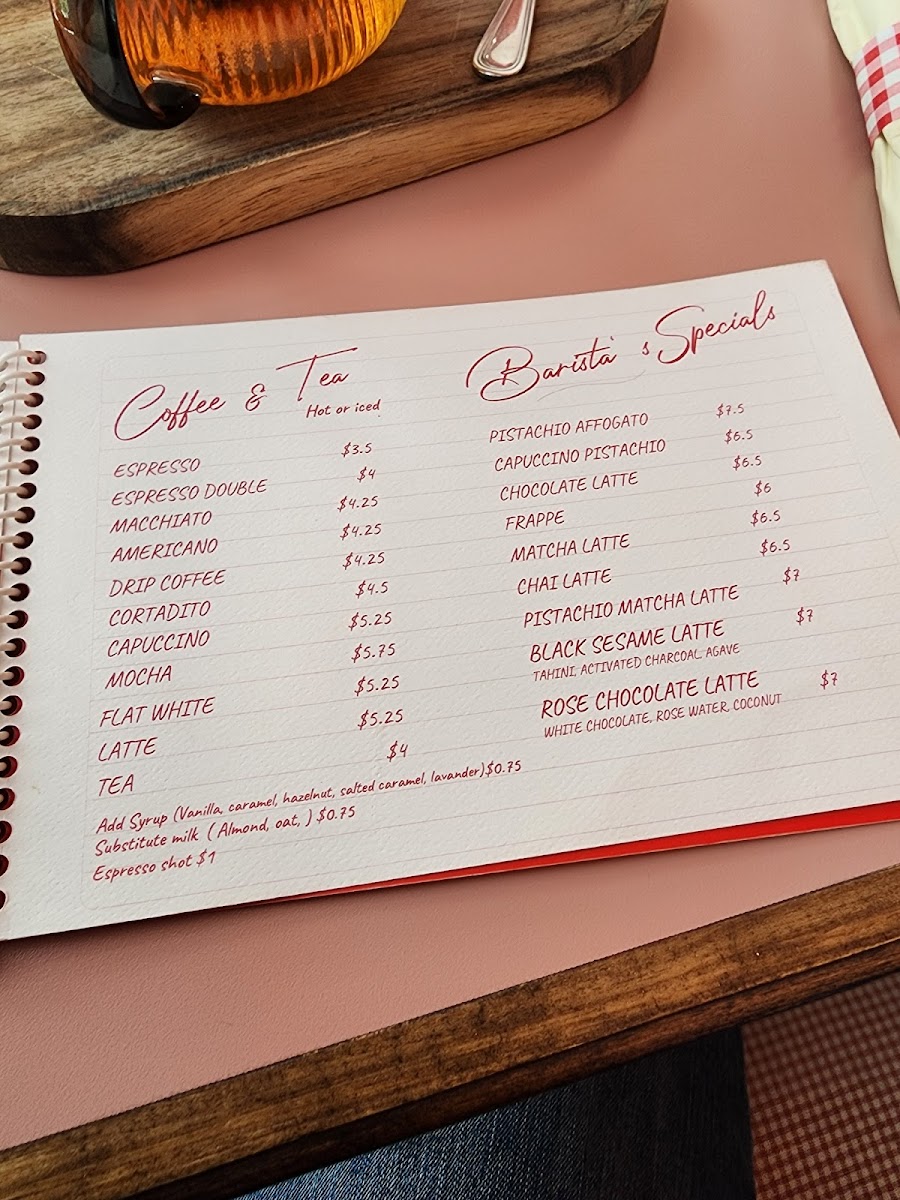 Coffee & Tea
Hot or iced
ESPRESSO $3.5
ESPRESSO DOUBLE $4
MACCHIATO $4.25
AMERICANO $4.25
DRIP COFFEE $4.25
CORTADITO $4.5
CAPUCCINO $5.25
MOCHA $5.75
FLAT WHITE $5.25
LATTE $5.25
TEA $4
Add Syrup (Vanilla, caramel, hazelnut, salted caramel, lavander)$0.75
Substitute milk ( Almond, oat, ) $0.75
Espresso shot $1
Barista's Specials
PISTACHIO AFFOGATO $7.5
CAPUCCINO PISTACHIO $6.5
CHOCOLATE LATTE $6.5
FRAPPE $6
MATCHA LATTE $6.5
CHAI LATTE $6.5
PISTACHIO MATCHA LATTE $7
BLACK SESAME LATTE $7
TAHINI, ACTIVATED CHARCOAL, AGAVE
ROSE CHOCOLATE LATTE $7
WHITE CHOCOLATE, ROSE WATER, COCONUT